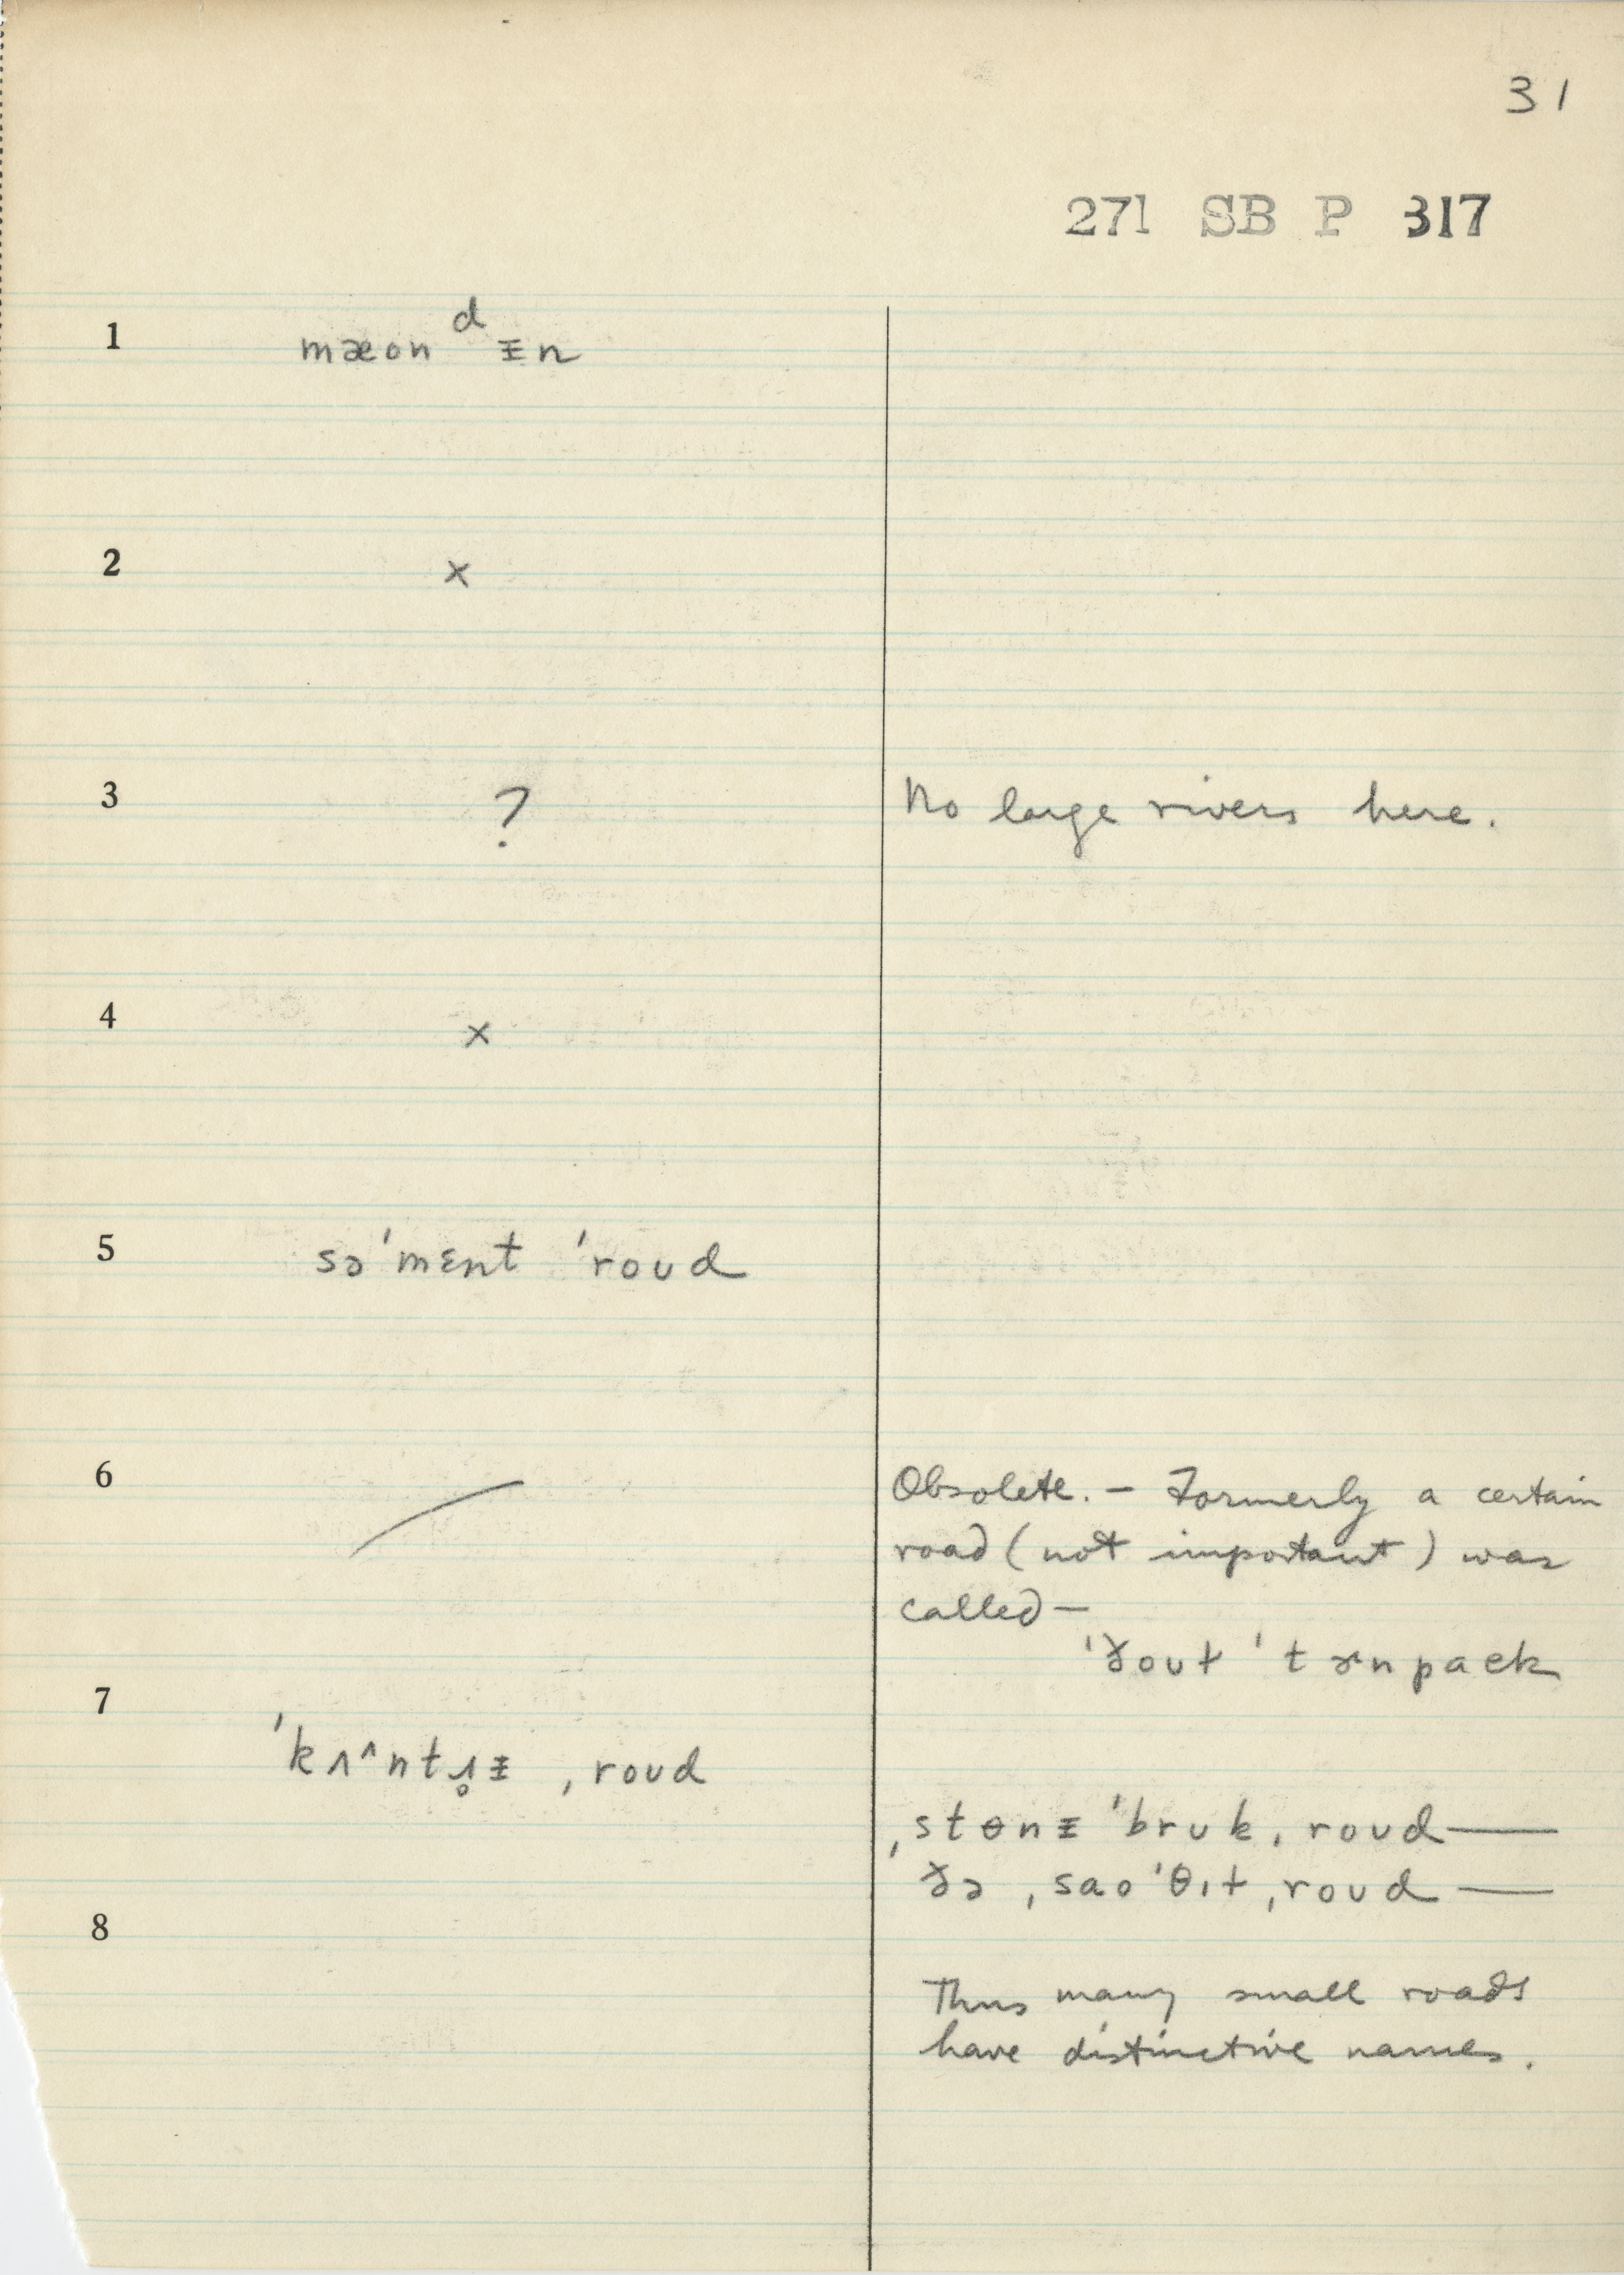 31
271 SB P 317
1 mæon d ᵻn
2 x
3 ? No large rivers here.
4 x
5 sə'mɛnt 'roʊd
6 Obsolete. – Formerly a certain
road (not important) was
called —
'ðoʊt 'tɚnpaek
7 'kʌ^ntɹ̥ᵻ ˌroʊd
ˌstɵnᵻ 'brʊkˌ roʊd —
ðə ˌsao'θɪt ˌroʊd —
8
Thus many small roads
have distinctive names.